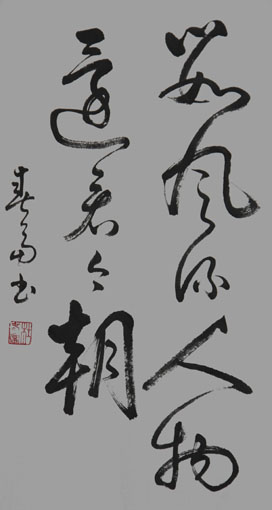 数风流人物
还看今朝
春富书